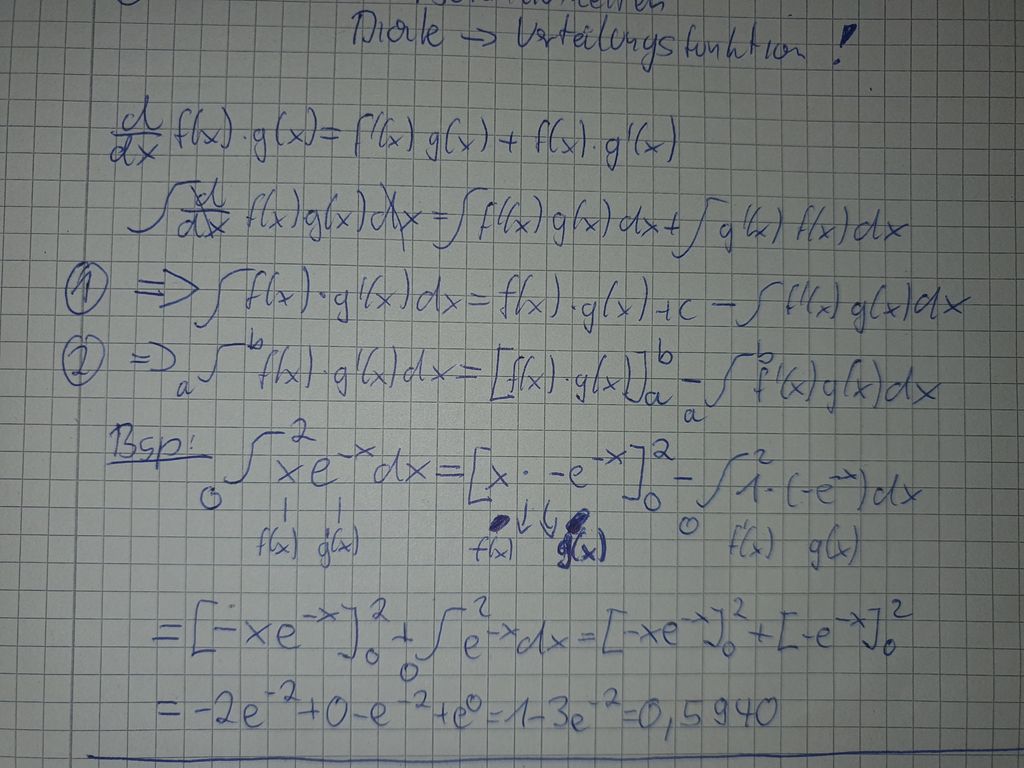 → Verteilungsfunktion !
d/dx f(x)·g(x) = f'(x) g(x) + f(x)·g'(x)
∫ d/dx f(x)g(x)dx = ∫ f'(x) g(x) dx + ∫ g'(x) f(x) dx
① ⇒ ∫ f(x)·g'(x)dx = f(x)·g(x) + c - ∫ f'(x) g(x)dx
② ⇒ a∫^b f(x)·g'(x)dx = [f(x)·g(x)]_a^b - a∫^b f'(x)g(x)dx
Bsp: 0∫^2 xe^-x dx = [x · -e^-x]_0^2 - 0∫^2 1·(-e^-x)dx
f(x) g'(x) f(x) g(x) f'(x) g(x)
= [-xe^-x]_0^2 + 0∫^2 e^-x dx = [-xe^-x]_0^2 + [-e^-x]_0^2
= -2e^-2 + 0 - e^-2 + e^0 = 1 - 3e^-2 = 0,5940